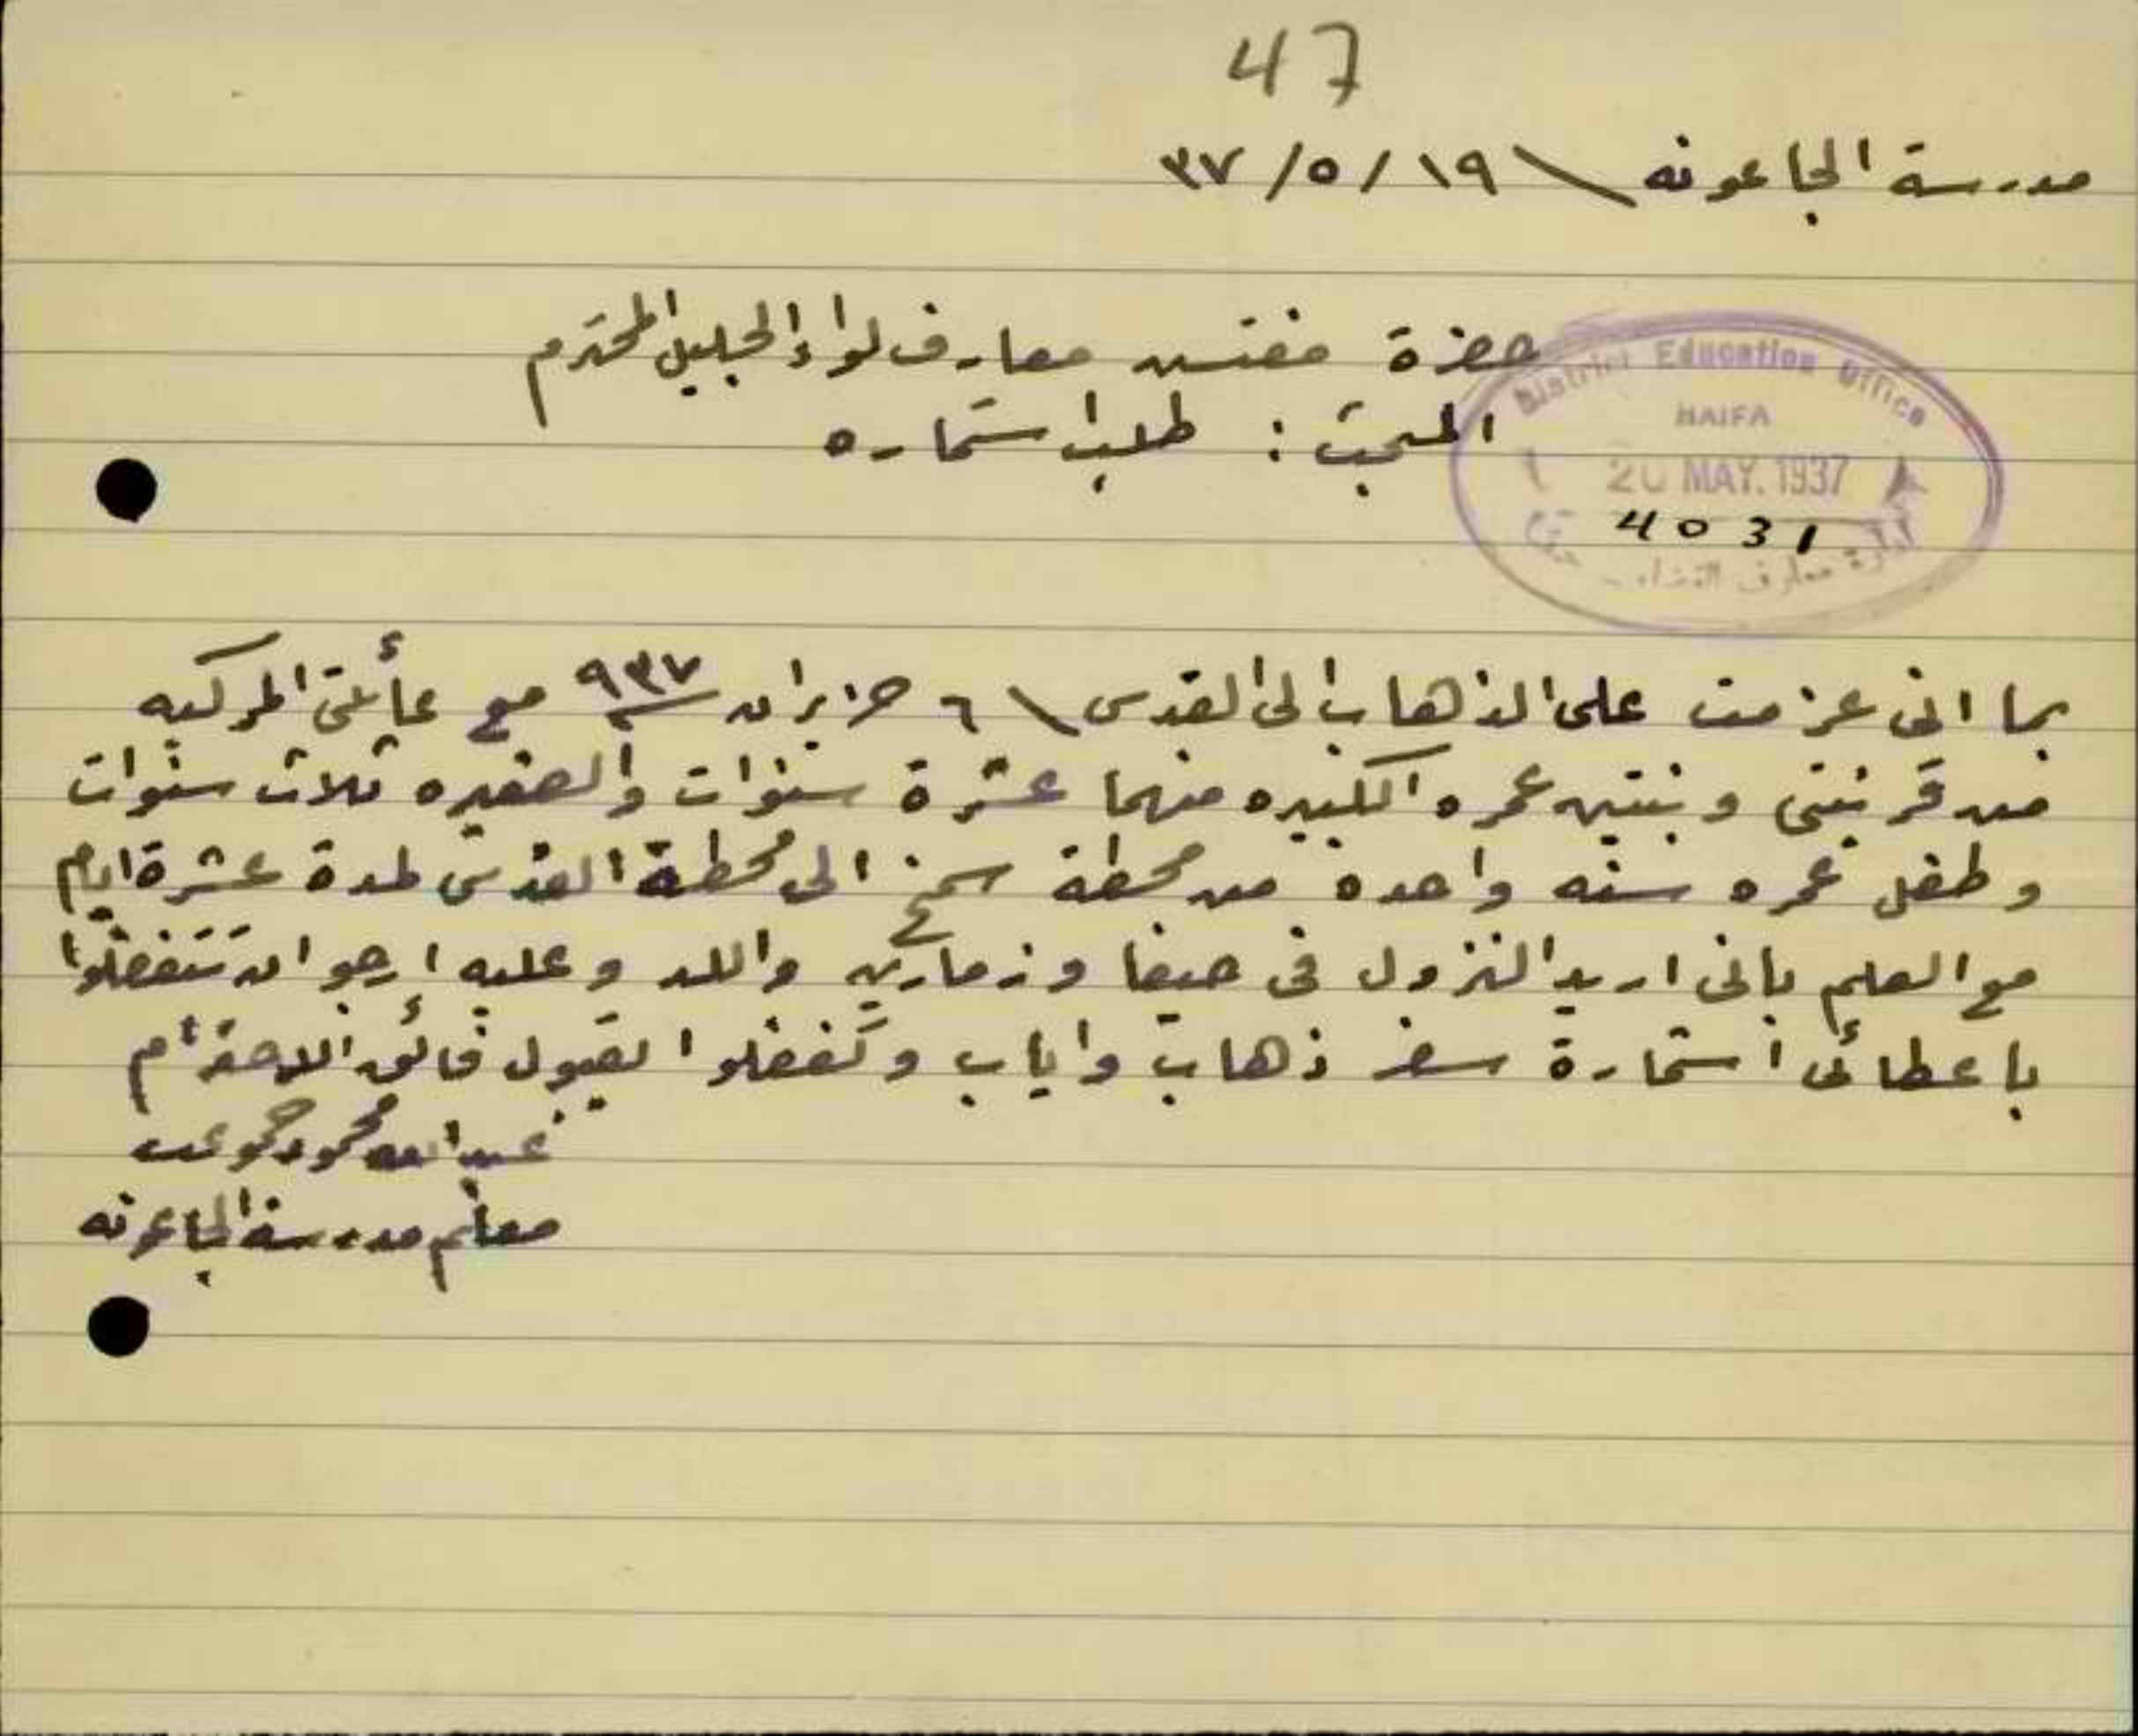 47
مدرسة الجاعونه \ ١٩ / ٥ / ٣٧
حضرة مفتش معارف لواء الجليل المحترم
المبحث : طلب استماره
District Education Office
HAIFA
20 MAY. 1937
4031
ادارة معارف اللواء
بما انى عزمت على الذهاب الى القدس \ ٦ حزيران سنة ٩٣٧ مع عائلتى المركبه
من قرينتى وبنتين عمر الكبيره منهما عشرة سنوات والصغيره ثلاث سنوات
وطفل عمره سنه واحده من محطة سمخ الى محطة القدس لمدة عشرة ايام
مع العلم بانى اريد النزول فى حيفا وزمارين واللد وعليه ارجو ان تتفضلوا
باعطائى استمارة سفر ذهاب واياب وتفضلوا بقبول فائق الاحترام
عبد الله محمود
معلم مدرسة الجاعونه